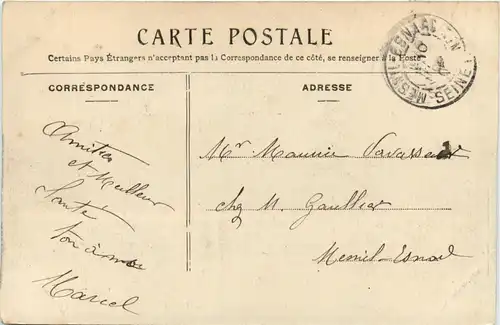 CARTE POSTALE
Certains Pays Étrangers n'acceptent pas la Correspondance de ce côté, se renseigner à la Poste
CORRESPONDANCE
ADRESSE
Amitiés
et Meilleur
Santé
ton ami
Marcel
Mr Maurice Vavasseur
chez M. Gaultier
Mesnil-Esnard